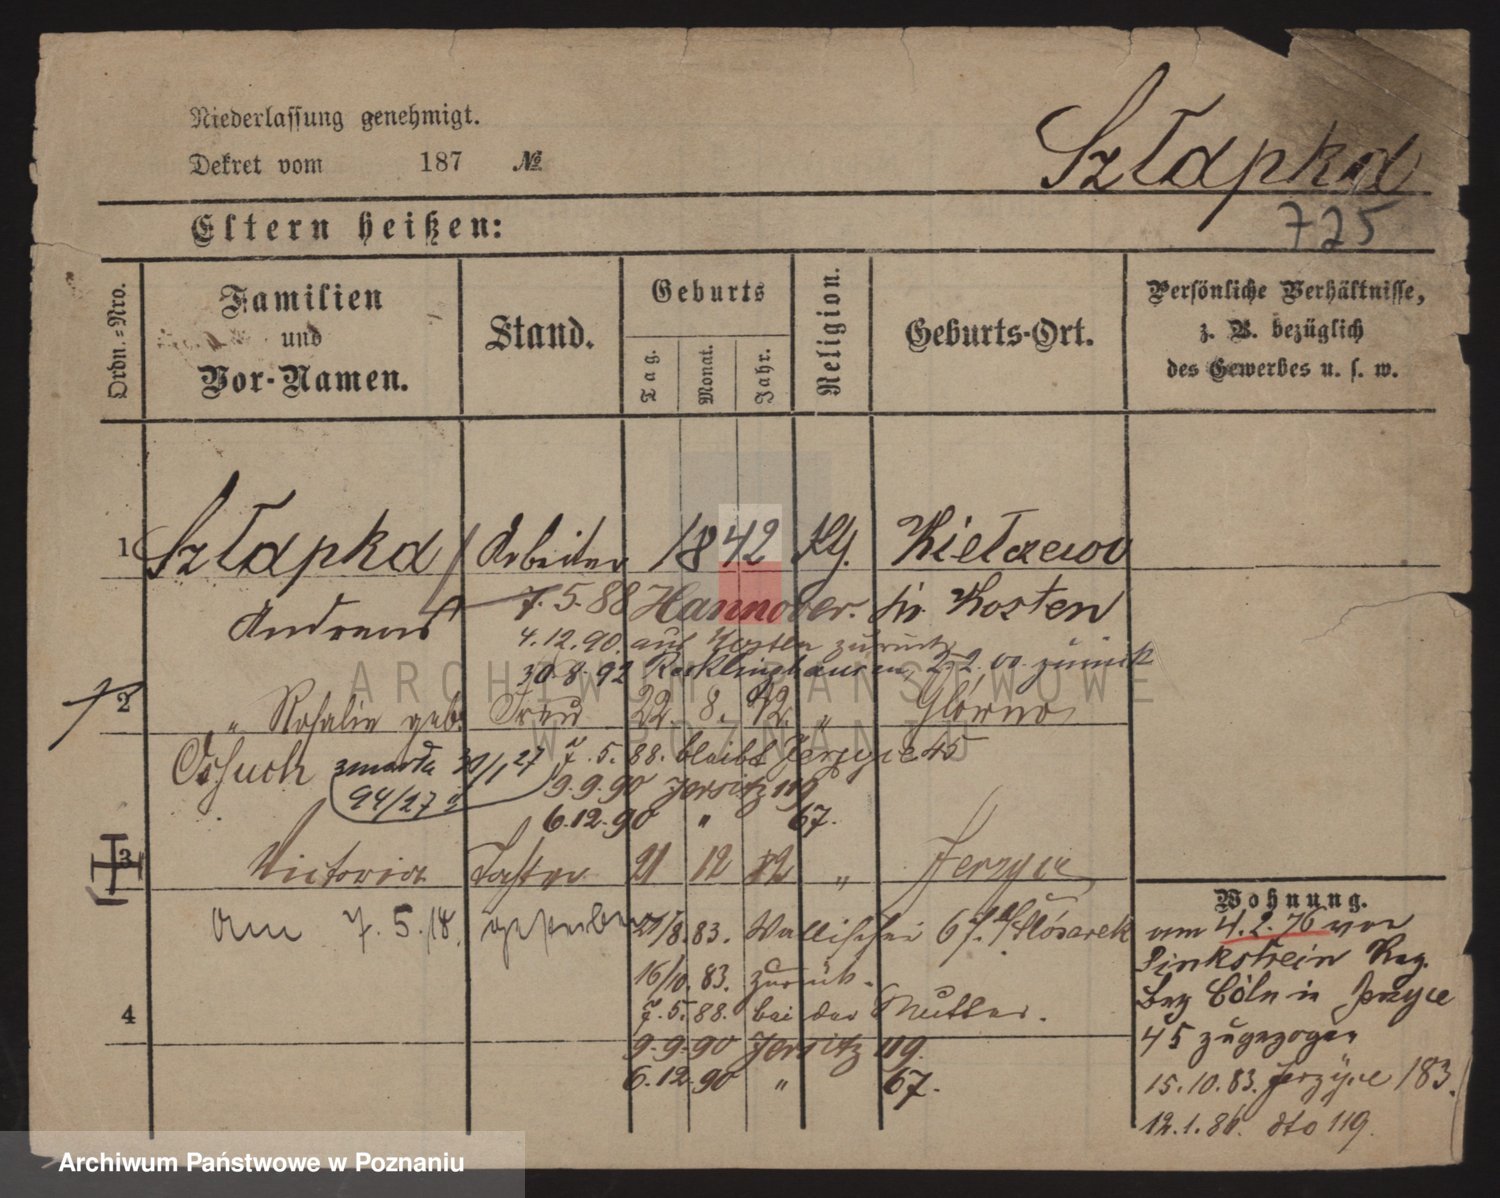 Niederlassung genehmigt.
Dekret vom 187 №
Szłapka
725
Eltern heißen:
Ordn.-Nro.
Familien und Vor-Namen.
Stand.
Geburts
Tag.
Monat.
Jahr.
Religion.
Geburts-Ort.
Persönliche Verhältnisse,
z. B. bezüglich
des Gewerbes u. s. w.
1 Szłapka Arbeiter 1842 Kielczewo
Andreas 7.5.88 Hannover. Kr. Kosten
4.12.90. aus Kosten zurück
30.8.92 Recklinghausen, 2.2.00. zurück
2 " Rosalie geb. Frau 22. 8. "
7.5.88. bleibt Jerzyce 45
Osuch zmarła 30/1 27
94/27
9.9.90 Jersitz 119
6.12.90 " 67.
3 Victoria Tochter 21 12 " Jerzyce
am 7.5.18. gestorben
21/8.83. Wallischei 67. Slósarek
16/10.83. zurück.
7.5.88. bei der Mutter.
4
9.9.90 Jersitz 119.
6.12.90 " 67.
Wohnung.
am 4.2.76 von
Reg.
Bez Cöln in Jerzyce
45 zugezogen
15.10.83. Jerzyce 183.
12.1.86. dto 119.
ARCHIWUM PAŃSTWOWE
W POZNANIU
Archiwum Państwowe w Poznaniu